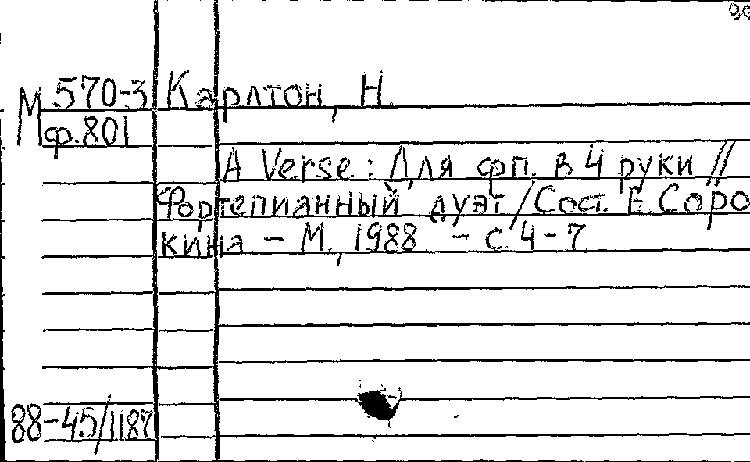 М 570-3 Карлтон, Н.
ф.801
A Verse : Для фп. в 4 руки //
Фортепианный дуэт / Сост. Е. Соро
кина - М., 1988 - с 4-7
88-45/1187